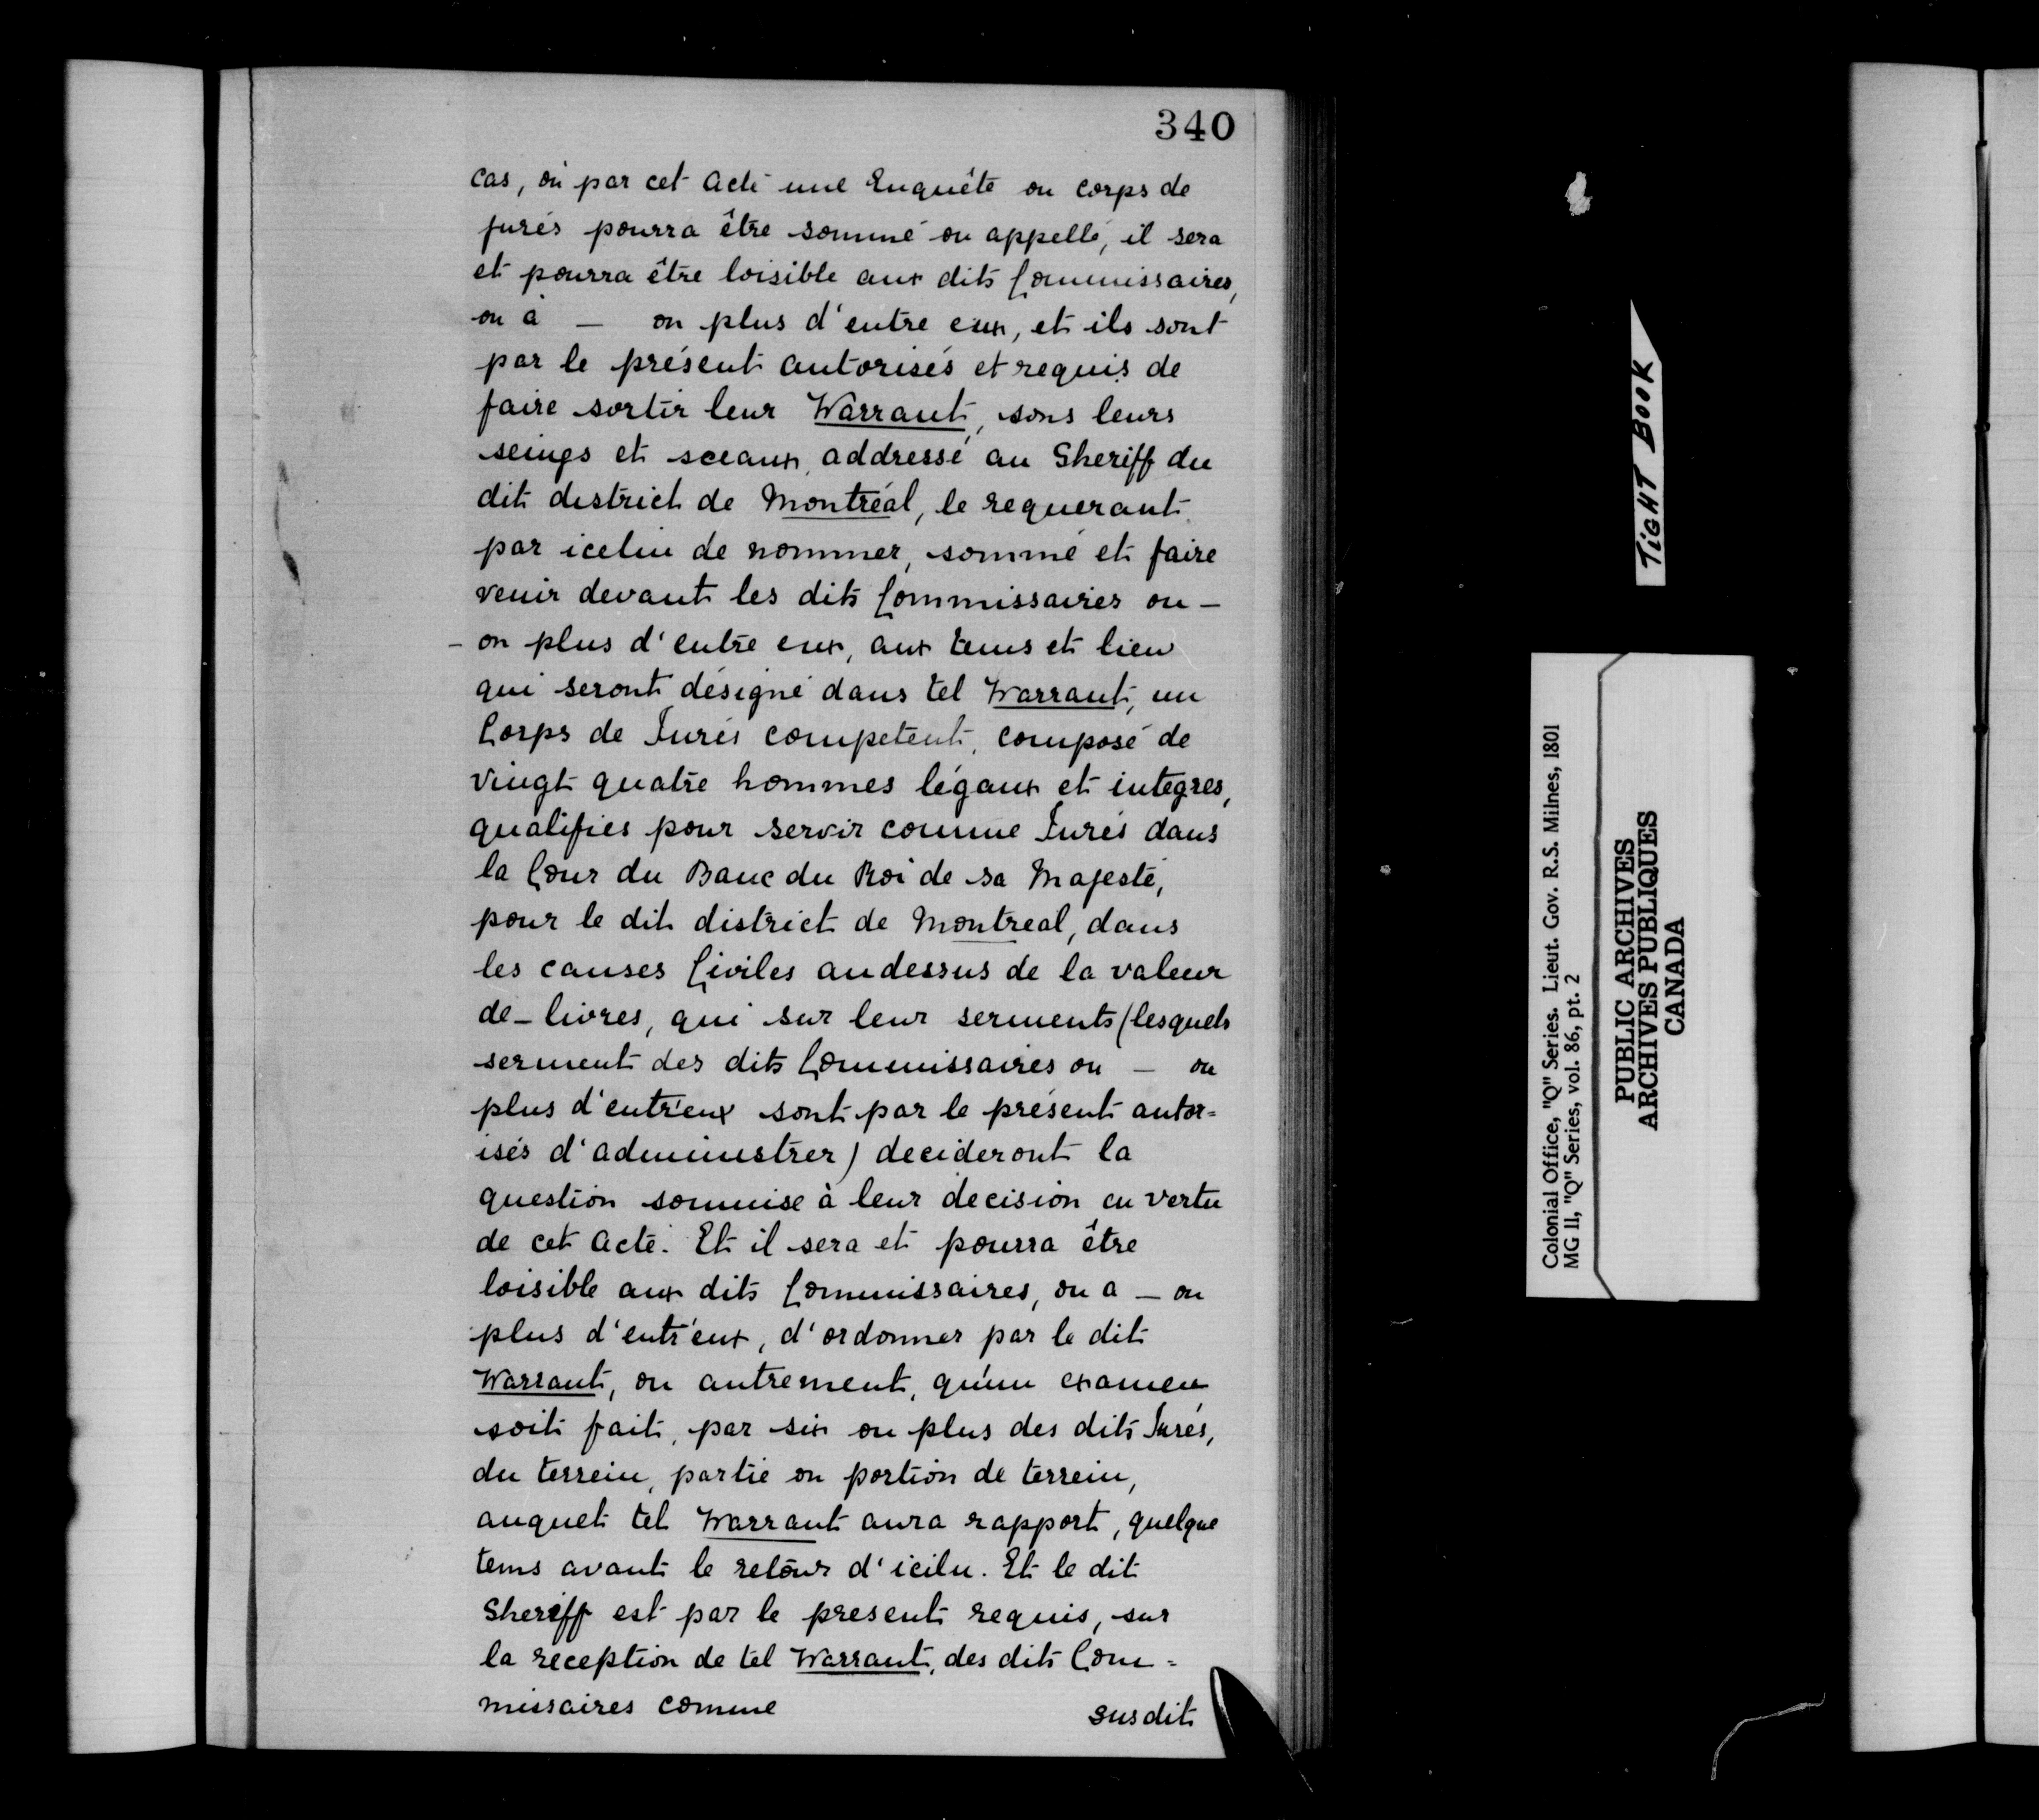 340
cas, où par cet acte une Enquête ou corps de
jurés pourra être sommé ou appellé, il sera
et pourra être loisible aux dits Commissaires,
ou à — ou plus d'entre eux, et ils sont
par le présent autorisés et requis de
faire sortir leur Warrant, sous leurs
seings et sceaux, addressé au Sheriff du
dit district de Montréal, le requerant
par icelui de nommer, sommé et faire
venir devant les dits Commissaires ou —
— ou plus d'entre eux, aux tems et lieu
qui seront désigné dans tel Warrant, un
Corps de Jurés competent, composé de
vingt quatre hommes légaux et integres,
qualifiés pour servir comme Jurés dans
la Cour du Banc du Roi de sa Majesté,
pour le dit district de Montreal, dans
les causes Civiles audessus de la valeur
de — livres, qui sur leur serments (lesquels
serment des dits Commissaires ou — ou
plus d'entr'eux sont par le présent autor=
isés d'administrer) decideront la
question soumise à leur decision en vertu
de cet acte. Et il sera et pourra être
loisible aux dits Commissaires, ou a — ou
plus d'entr'eux, d'ordonner par le dit
Warrant, ou autrement, qu'un examen
soit fait, par six ou plus des dits Jurés,
du terrein, partie ou portion de terrein,
auquel tel Warrant aura rapport, quelque
tems avant le retour d'icilu. Et le dit
Sheriff est par le present requis, sur
la reception de tel Warrant, des dits Com=
missaires comme susdit
TIGHT BOOK
Colonial Office, "Q" Series. Lieut. Gov. R.S. Milnes, 1801
MG 11, "Q" Series, vol. 86, pt. 2
PUBLIC ARCHIVES
ARCHIVES PUBLIQUES
CANADA